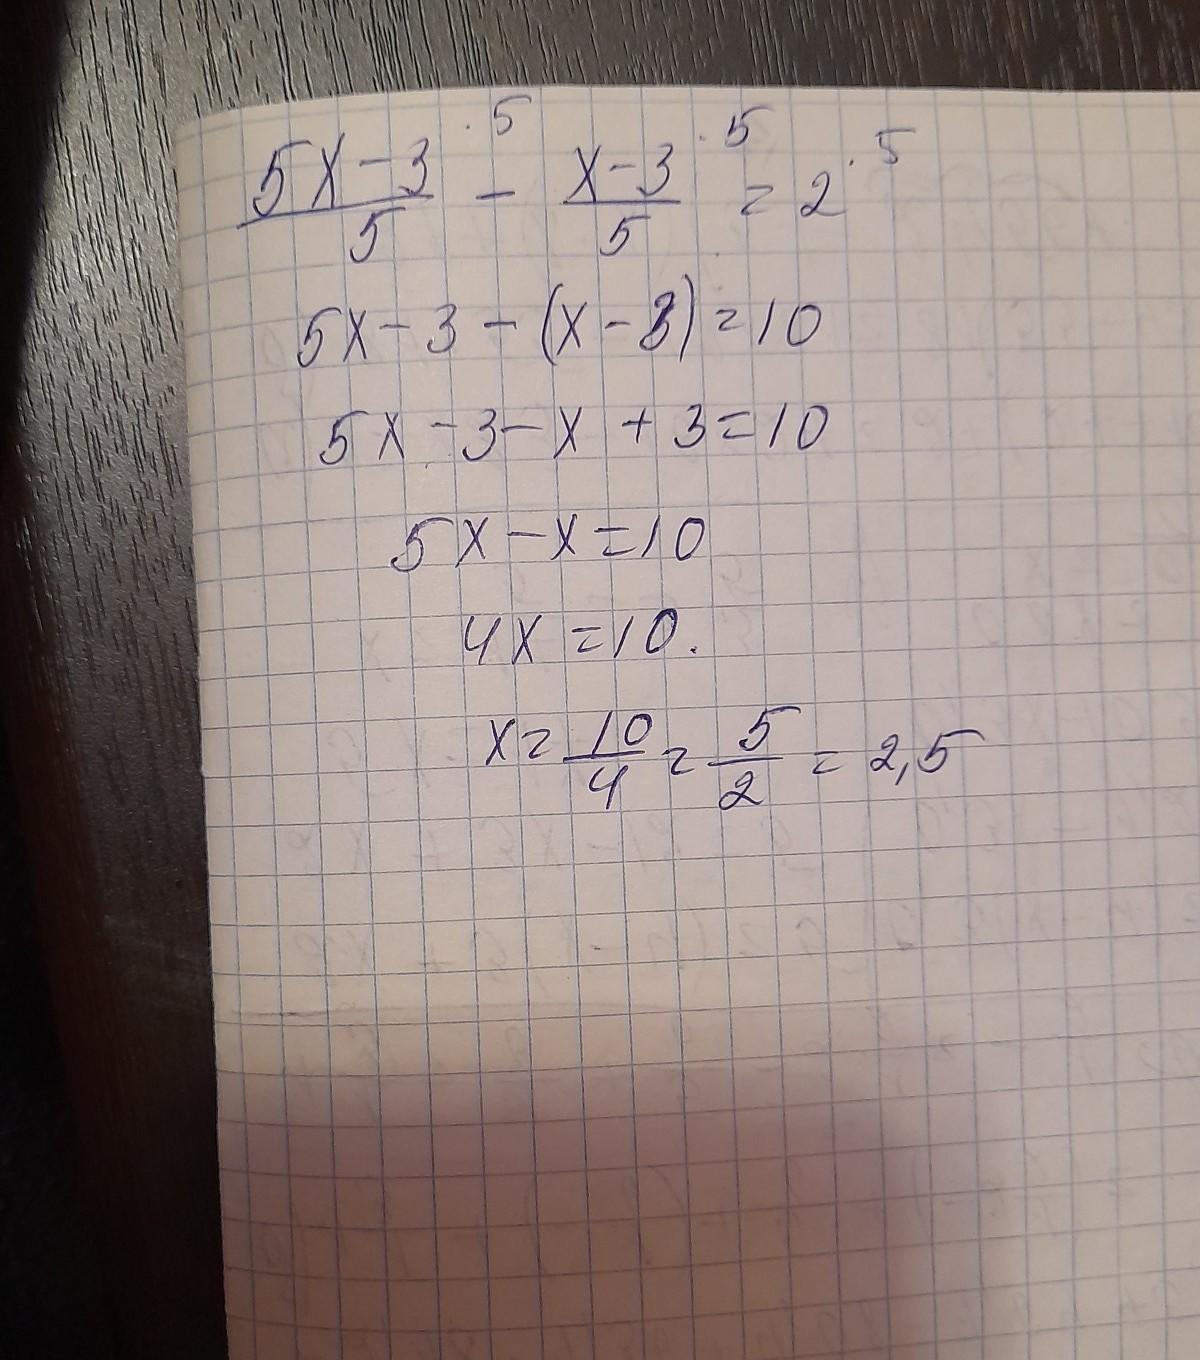 5x-3/5 ·5 - x-3/5 ·5 = 2 ·5
5x-3-(x-3)=10
5x-3-x+3=10
5x-x=10
4x=10.
x=10/4=5/2=2,5